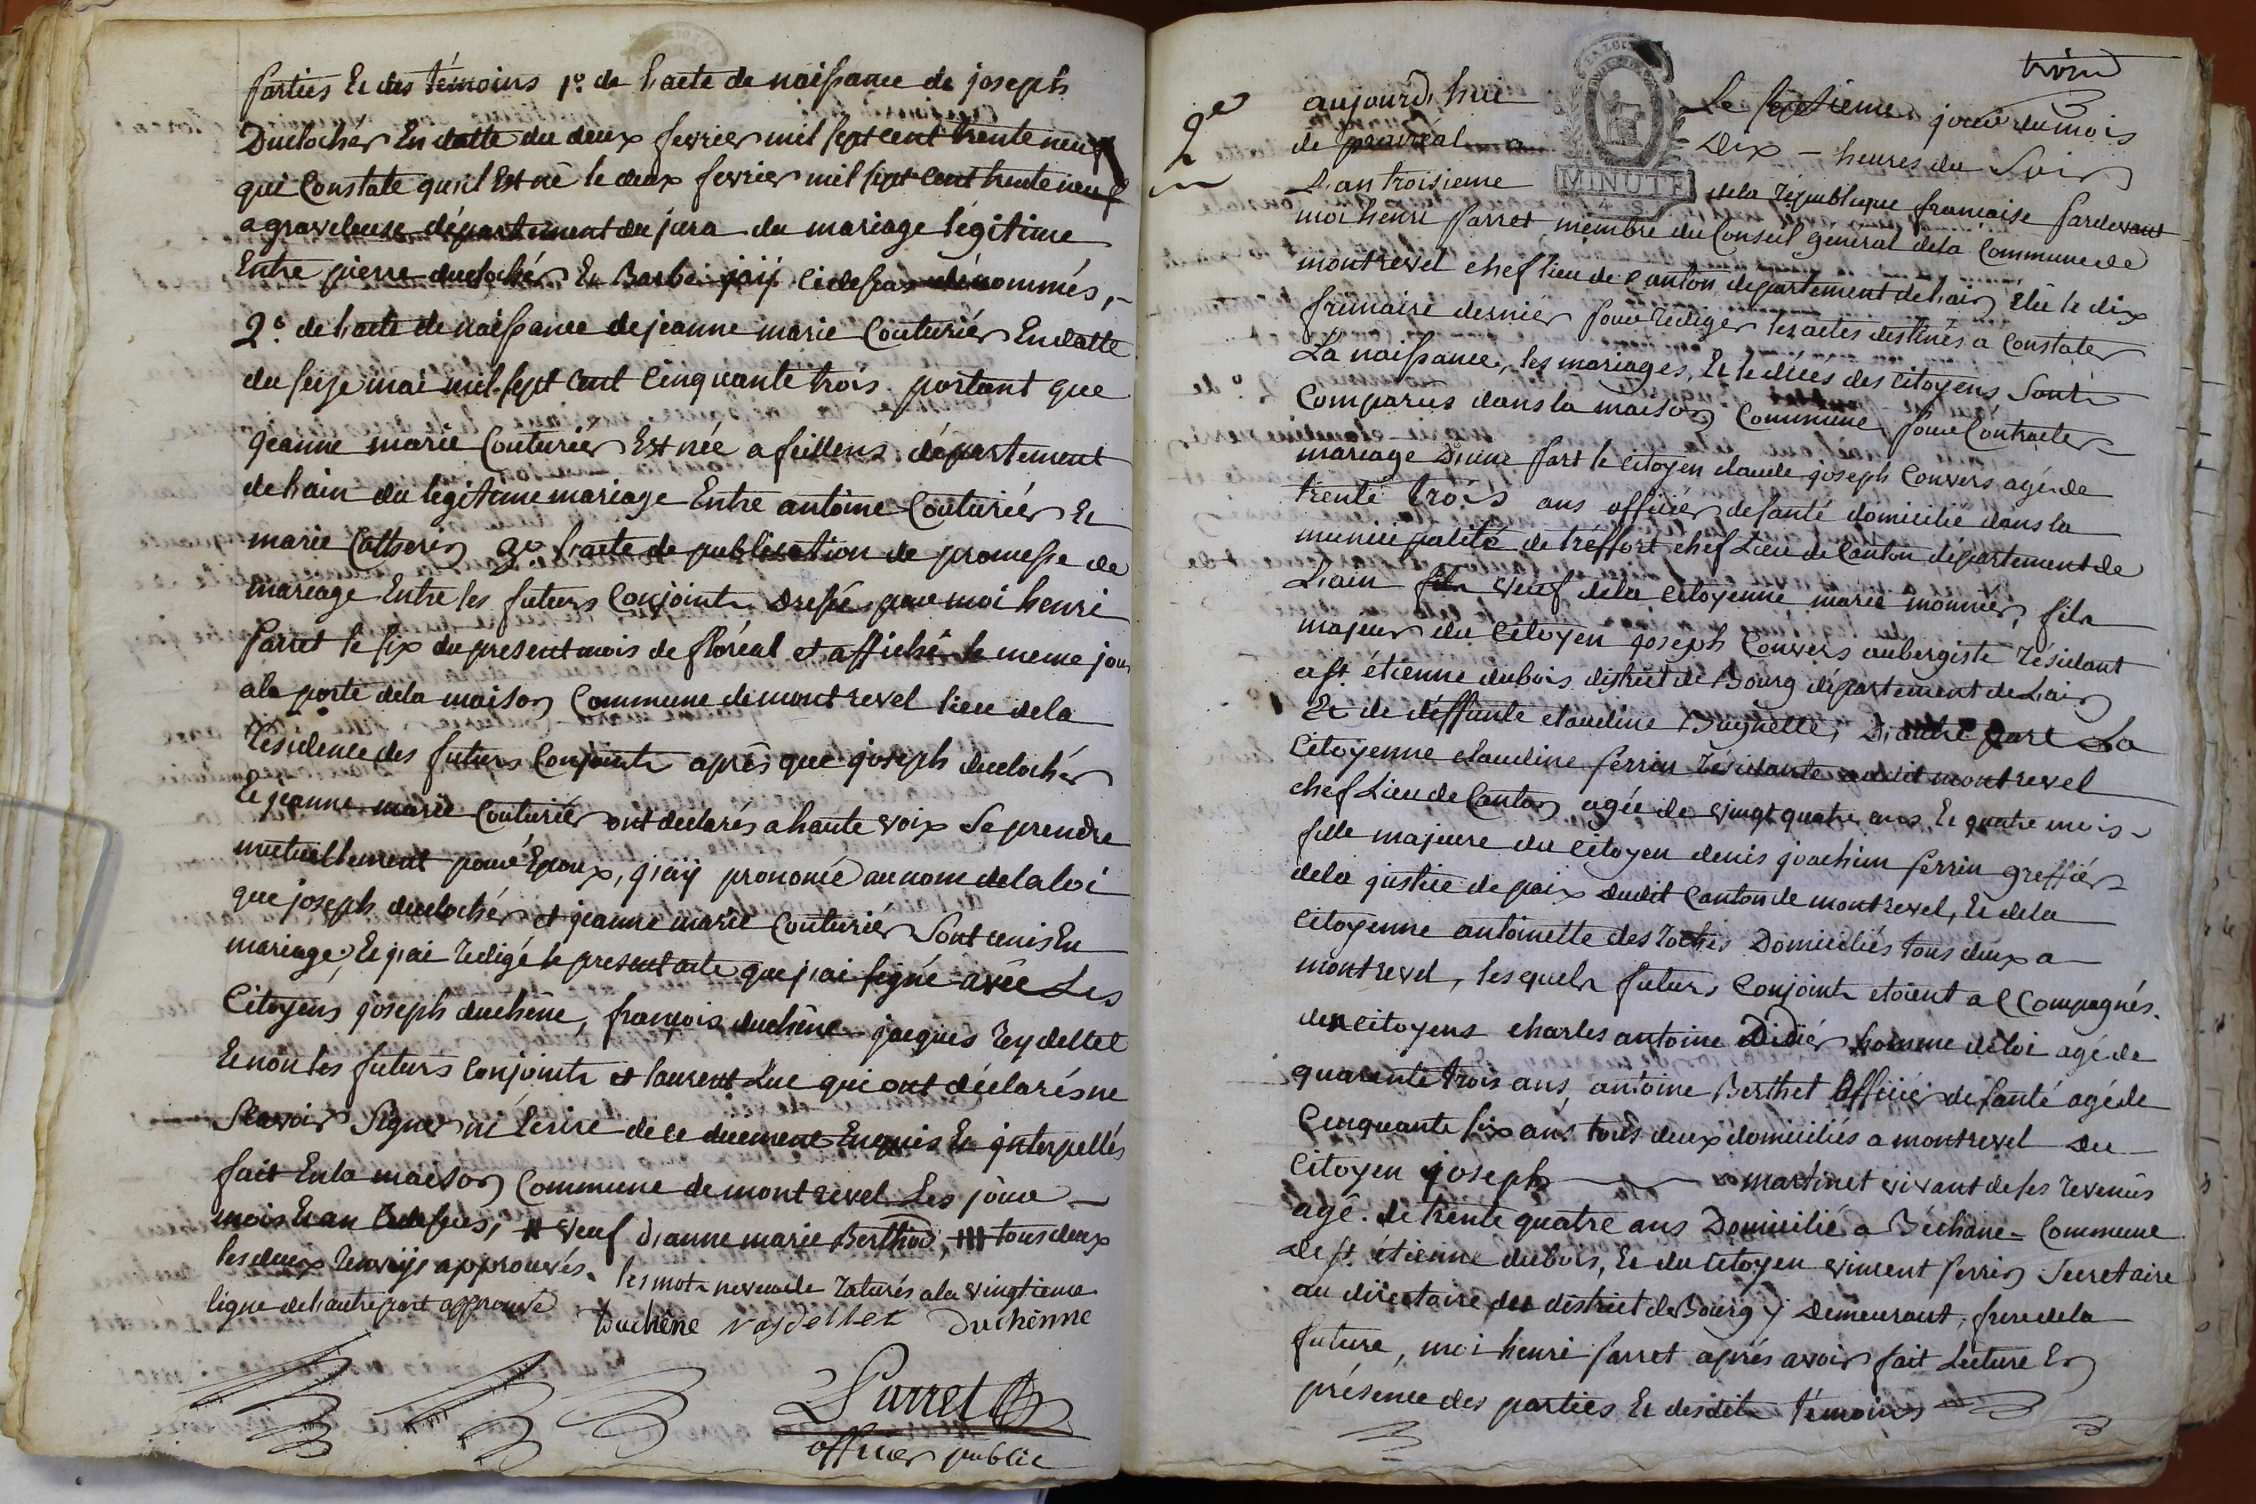 parties Et des témoins 1o. de L'acte de naissance de joseph
Duclocher En datte du deux fevrier mil sept cent trente neuf
qui Constate qu'il Est né le deux fevrier mil sept cent trente neuf
a graveleuse département du jura du mariage légitime
Entre pierre duclochér Et Barbe jaÿ cidessus dénommés,
2o. de L'acte de naissance de jeanne marie Couturiér En datte
du seize mai mil sept cent cinquante trois portant que
jeanne marie Couturiér Est née a feillens département
de L'ain du légitime mariage Entre antoine Couturiér Et
marie Catherin 3o. L'acte de publication de promesse de
mariage Entre les futurs Conjoints dressé par moi henri
parret le six du present mois de floréal et affiché le meme jour
a la porte de la maison Commune de montrevel lieu de la
Résidence des futurs Conjoints aprés que joseph duclochér
Et jeanne marie Couturiér ont declarés a haute voix Se prendre
mutuellement pour Epoux, j'aÿ prononcé au nom de la loi
que joseph duclochér et jeanne marie Couturiér Sont unis En
mariage, Et j'ai redigé le present acte que j'ai signé avec Les
Citoyens joseph duchêne, françois duchêne jacques Reydellet
Et non les futurs Conjoints et laurent Luc qui ont déclarés ne
Scavoir Signer ni Ecrire de ce duement Enquis Et interpellés
fait En la maison Commune de montrevel Les jour
mois Et an Cidessus, # veuf d'anne marie Berthod, ### tous deux
les deux Renvois approuvés. les mots raturés a la vingtieme
ligne de L'autre part approuvé
duchêne reydellet Duchênne
Parret
officier public
trois
2e
MINUTE
aujourd'hui Le septieme jour du mois
de prairéal a Dix - heures du Soir
L'an troisieme de la République française pardevant
moi henri parret membre du Conseil général de la Commune de
montrevel chef lieu de Canton département de L'ain Elu le dix
frimaire dernier pour rediger les actes destinés a Constater
La naissance, les mariages, Et le décés des citoyens Sont
Comparus dans la maison Commune pour Contracter
mariage D'une part le Citoyen claude joseph Convers agé de
trente trois ans officiér de santé domicilié dans la
municipalité de tréffort chef Lieu de Canton département de
L'ain fils veuf de la citoyenne marie monnier, fils
majeur du Citoyen joseph Convers aubergiste résidant
a st. étienne dubois district de Bourg département de L'ain
Et de déffunte claudine Bugnette, D'autre part La
Citoyenne claudine perrin résidante audit montrevel
chef Lieu de Canton agée de vingt quatre ans Et quatre mois
fille majeure du citoyen denis joachim perrin greffiér
de la justice de paix dudit Canton de montrevel, Et de la
Citoyenne antoinette desroches Domiciliés tous deux a
montrevel, lesquels futurs Conjoints etoient accompagnés.
des citoyens charles antoine Didiér homme de loi agé de
quarante trois ans, antoine Berthet officiér de santé agé de
Cinquante six ans tous deux domiciliés a montrevel du
Citoyen joseph martinet vivant de ses revenus
agé. de trente quatre ans Domicilié a Béchane = Commune
de st. étienne dubois, Et du Citoyen vincent perrin Secretaire
au directoire du district de Bourg y Demeurant, frere de la
future, moi henri parret aprés avoir fait Lecture En
présence des parties Et desdits témoins